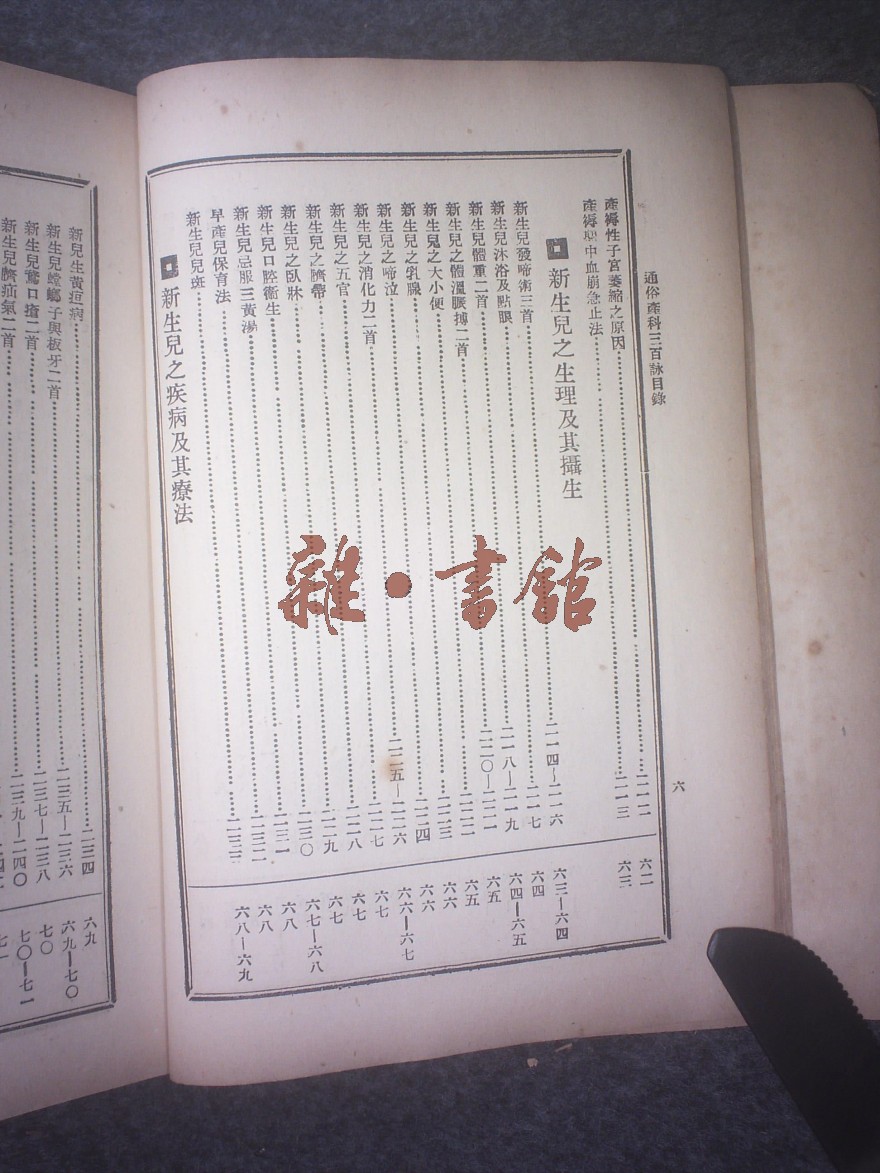 通俗產科三百詠目錄 六
產褥性子宮萎縮之原因……二一二 六二
產褥期中血崩急止法……二一三 六三
新生兒之生理及其攝生
新生兒發啼術三首……二一四—二一六 六三—六四
新生兒沐浴及點眼……二一七 六四
新生兒體重二首……二一八—二一九 六四—六五
新生兒之體溫脈搏二首……二二〇—二二一 六五
新生兒之大小便……二二二 六五
新生兒之乳腺……二二三 六六
新生兒之啼泣……二二四 六六
新生兒之消化力二首……二二五—二二六 六六—六七
新生兒之五官……二二七 六七
新生兒之臍帶……二二八 六七
新生兒之臥牀……二二九 六七
新生兒口腔衞生……二三〇 六七—六八
新生兒忌服三黃湯……二三一 六八
早產兒保育法……二三二 六八
新生兒兒斑……二三三 六八—六九
新生兒之疾病及其療法
新兒生黃疸病……二三四 六九
新生兒螳螂子與板牙二首……二三五—二三六 六九—七〇
新生兒鵞口瘡二首……二三七—二三八 七〇
新生兒臍疝氣二首……二三九—二四〇 七〇—七一
雜·書館